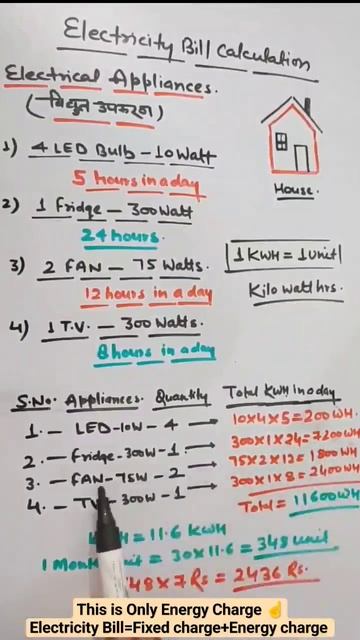 Electricity Bill Calculation
Electrical Appliances.
(विद्युत उपकरण)
1) 4 LED Bulb - 10 Watt
5 hours in a day
2) 1 Fridge - 300 Watt
24 hours.
3) 2 FAN - 75 Watts.
12 hours in a day
4) 1 T.V. - 300 Watts.
8 hours in a day
House.
1 KWH = 1 Unit
Kilo watt hrs.
S.No. Appliances Quantity Total KWH in a day
1. - LED-10W - 4 → 10x4x5 = 200 WH.
2. - Fridge-300W-1 → 300x1x24 = 7200 WH
3. - FAN-75W - 2 → 75x2x12 = 1800 WH
4. - TV-300W - 1 → 300x1x8 = 2400 WH
Total = 11600 WH
= 11.6 KWH
1 = 30x11.6 = 348 Unit
48x7 Rs = 2436 Rs.
This is Only Energy Charge ☝️
Electricity Bill=Fixed charge+Energy charge